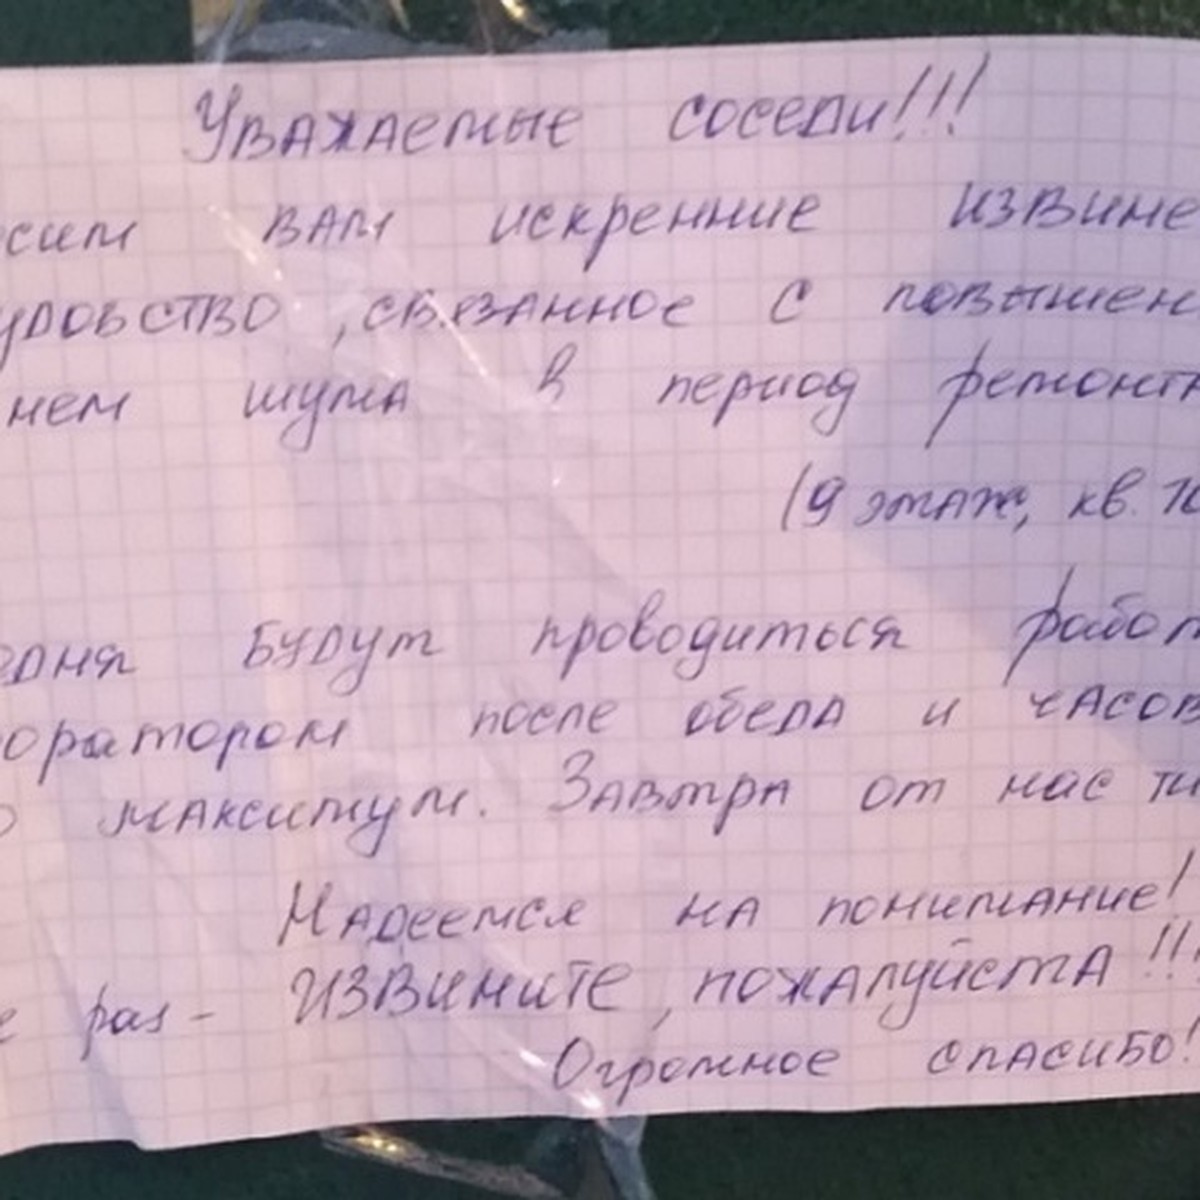 Уважаемые соседи!!!
сим вам искренние извине
удовство, связанное с повышен
нем шума в период ремонта
(9 этаж, кв.
одня будут проводиться работ
форатором после обеда и часов
о максимум. Завтра от нас ти
Надеемся на понимание!
е раз - извините, пожалуйста!!!
Огромное спасибо!